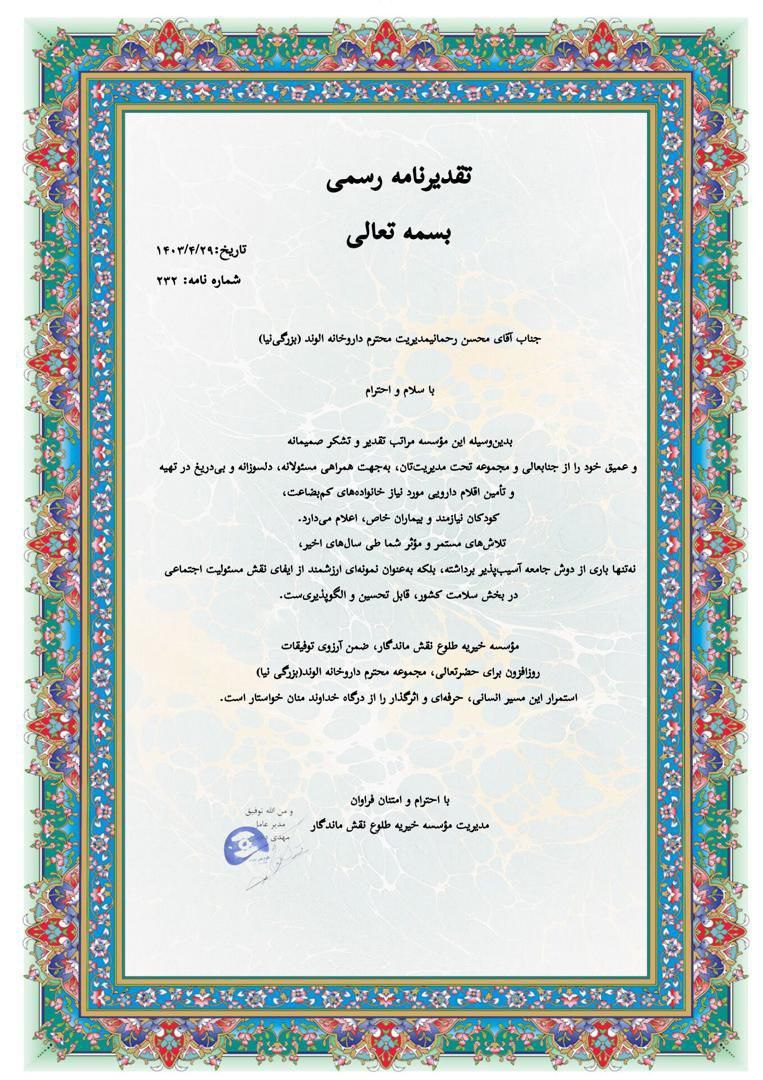 تقدیرنامه رسمی
بسمه تعالی
تاریخ:۱۴۰۳/۴/۲۹
شماره نامه: ۲۳۲
جناب آقای محسن رحمانیمدیریت محترم داروخانه الوند (بزرگی‌نیا)
با سلام و احترام
بدین‌وسیله این مؤسسه مراتب تقدیر و تشکر صمیمانه
و عمیق خود را از جنابعالی و مجموعه تحت مدیریت‌تان، به‌جهت همراهی مسئولانه، دلسوزانه و بی‌دریغ در تهیه
و تأمین اقلام دارویی مورد نیاز خانواده‌های کم‌بضاعت،
کودکان نیازمند و بیماران خاص، اعلام می‌دارد.
تلاش‌های مستمر و مؤثر شما طی سال‌های اخیر،
نه‌تنها باری از دوش جامعه آسیب‌پذیر برداشته، بلکه به‌عنوان نمونه‌ای ارزشمند از ایفای نقش مسئولیت اجتماعی
در بخش سلامت کشور، قابل تحسین و الگوپذیری‌ست.
مؤسسه خیریه طلوع نقش ماندگار، ضمن آرزوی توفیقات
روزافزون برای حضرتعالی، مجموعه محترم داروخانه الوند(بزرگی نیا)
استمرار این مسیر انسانی، حرفه‌ای و اثرگذار را از درگاه خداوند منان خواستار است.
با احترام و امتنان فراوان
مدیریت مؤسسه خیریه طلوع نقش ماندگار
و من الله توفیق
مدیر عامل
مهدی